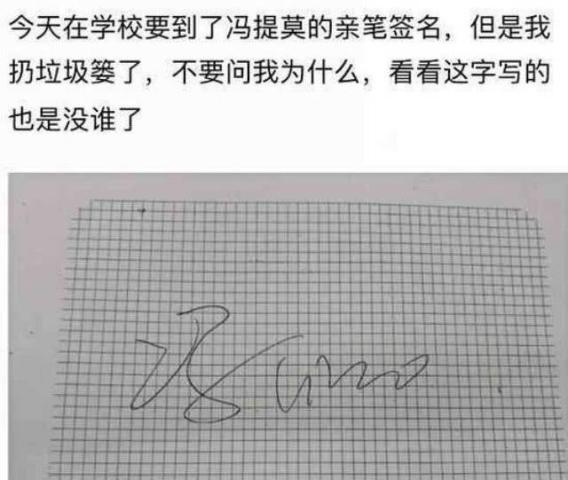 今天在学校要到了冯提莫的亲笔签名，但是我
扔垃圾篓了，不要问我为什么，看看这字写的
也是没谁了
冯